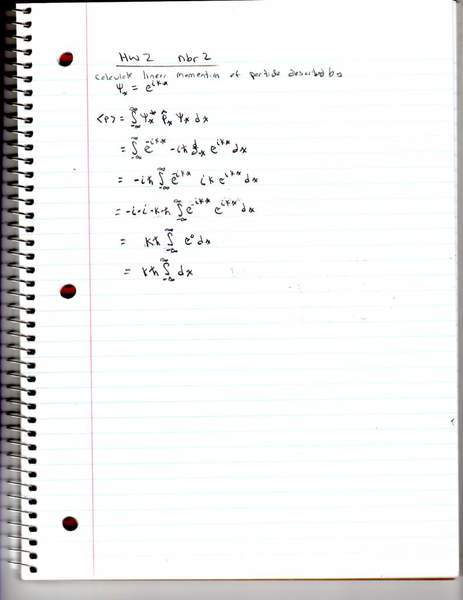 HW2 nbr 2
Calculate linear momentum of particle described by
Ψₓ = e^{ikx}
<p> = ∫_{-∞}^{∞} Ψₓ* p̂ₓ Ψₓ dx
= ∫_{-∞}^{∞} e^{-ikx} -iħ d/dx e^{ikx} dx
= -iħ ∫_{-∞}^{∞} e^{-ikx} ik e^{ikx} dx
= -i·i·k·ħ ∫_{-∞}^{∞} e^{-ikx} e^{ikx} dx
= kħ ∫_{-∞}^{∞} e⁰ dx
= kħ ∫_{-∞}^{∞} dx